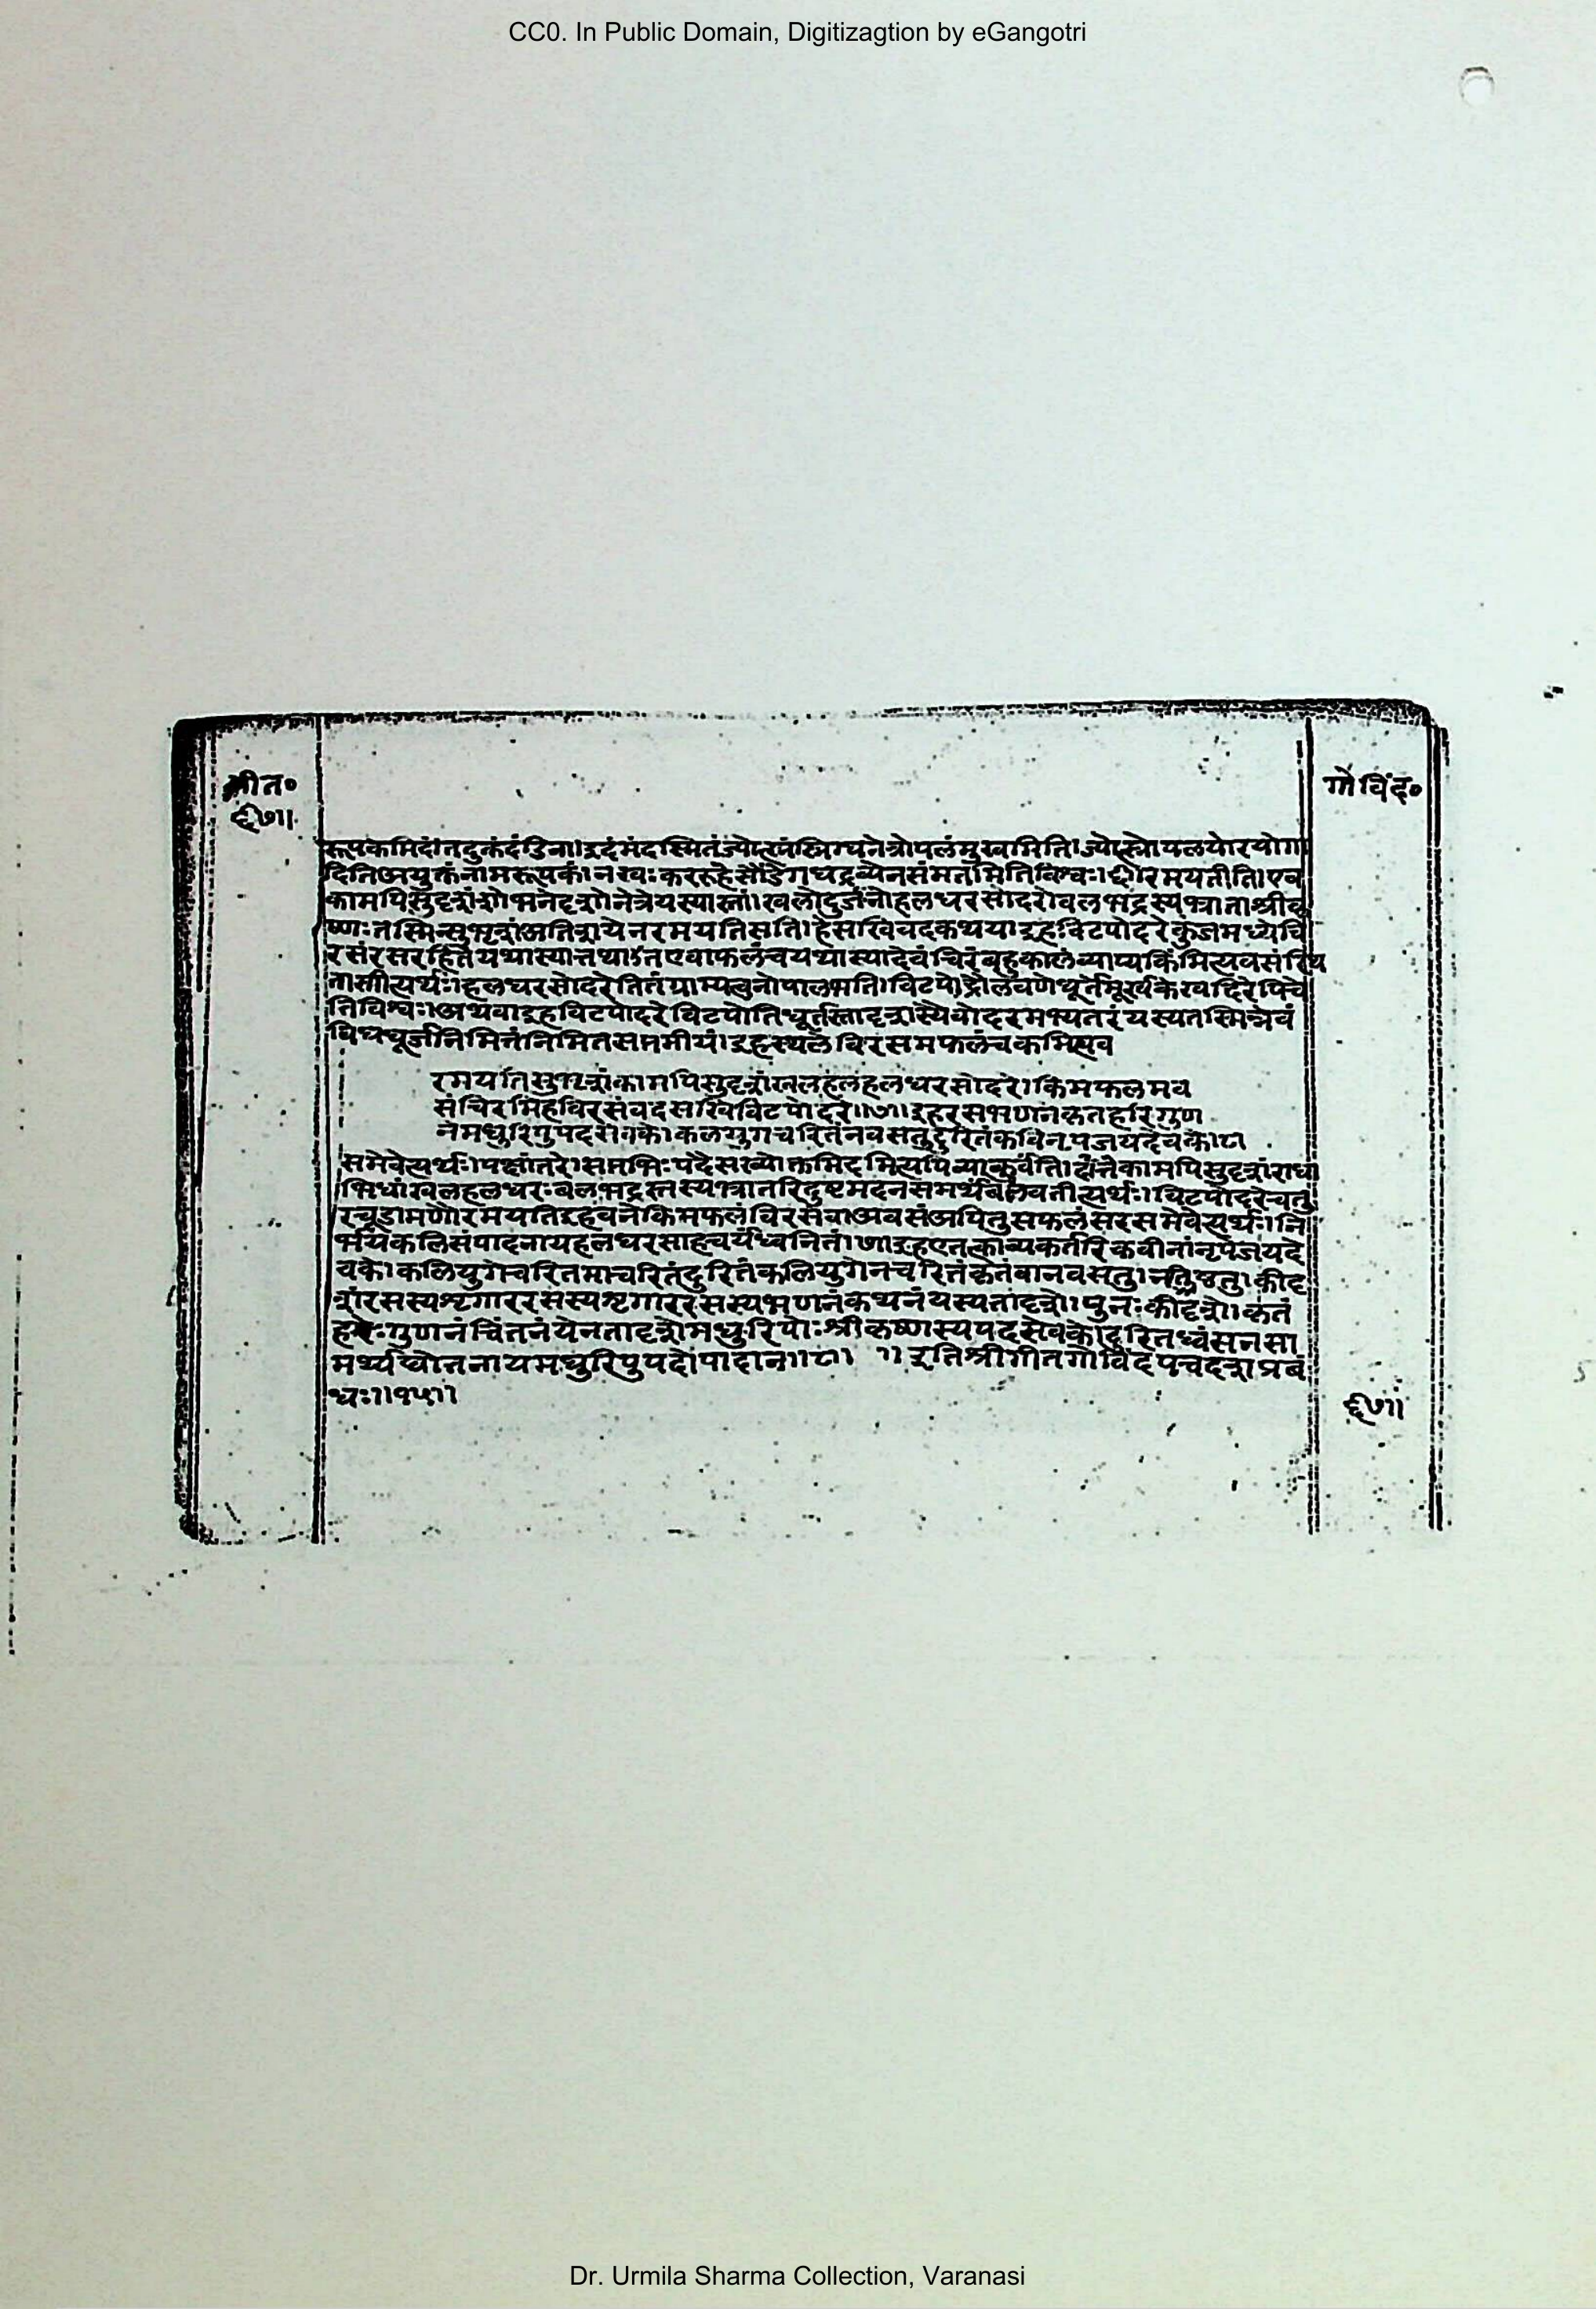 CC0. In Public Domain, Digitizagtion by eGangotri
गीत०
गोविंद०
६७॥
रूपकमिदं।तदुक्तंदंडिना।इदंमंदस्मितंज्योत्स्नंस्निग्धनेत्रोत्पलंमुखमिति।ज्योत्स्नोत्पलयोरयोगा
दितिअयुक्तंनामरूपकं।नखः कररुहेसौंडेगंधद्रव्येनसंमतमितिविश्वः। रमयतीति।एव
कामपिसुदृशांशोभनदृशोनेत्रेयस्यास्तां।खलोदुर्जनोहलधरसोदरोबलभद्रस्यभ्राताश्रीकृ
ष्णःतस्मिन्सुभृशंअतिशयेनरमयतिसति।हेसखिवदकथय।इहविटपोदरेकुंजमध्येचि
रसंरसरहितंयथास्यात्तथाऽतएवाफलंचयथास्यादेवंचिरंबहुकालंव्याप्यकिमित्यवसंस्थि
तासीत्यर्थः।हलधरसोदरेतितंग्राम्यत्वेनोपालभति।
तिविश्वः।अथवाइहविटपोदरेविटपोतिधूर्तस्तादृशस्यैवोदरमभ्यंतरंयस्यतस्मिन्नेवं
निमित्तंनिमित्तसप्तमीयं।इहस्थलेविरसमफलंचकमित्यव
रमयतिसुभृशंकामपिसुदृशंखलहलहलधरसोदरे।किमफलमव
संचिरमिहविरसंवदसखिविटपोदरे॥७॥इहरसभणनेकृतहरिगुण
नेमधुरिपुपदसेवके।कलियुगचरितंनवसतुदुरितंकविनृपजयदेवके।८।
समेवेत्यर्थः।पक्षांतरे।सप्तभिःपदैसख्योक्तमिदमित्यपिव्याकुर्वंति। कामपिसुदृशंराधा
भिधांखलहलधरःबलभद्रस्तस्यभ्रातरिदुष्टमदनसमर्थबलवतीत्यर्थः।विटपोदरेचतु
रचूडामणौरमयतिइहवनेकिमफलंविरसंवाअवसंअपितुसफलंसरसमेवेत्यर्थः।नि
र्भयकलिसंपादनायहलधरसाहचर्यंध्वनितं।७।इहएतत्काव्यकर्तरिकवीनांनृपेजयदे
वके।कलियुगेचरितमाचरितंदुरितंकलियुगेनचरितंकृतंवानवसतु।नतिष्ठतु।कीदृ
शेरसस्यशृंगाररसस्यशृंगाररसस्यभणनंकथनंयस्यतादृशे।पुनःकीदृशे।कृतं
हरेःगुणनंचिंतनंयेनतादृशेमधुरिपोःश्रीकृष्णस्यपदसेवके।दुरितध्वंसनसा
मर्थ्यद्योतनायमधुरिपुपदोपादान॥८॥ ॥इतिश्रीगीतगोविंदेपंचदशप्रबं
धः॥१५॥
६७॥
Dr. Urmila Sharma Collection, Varanasi